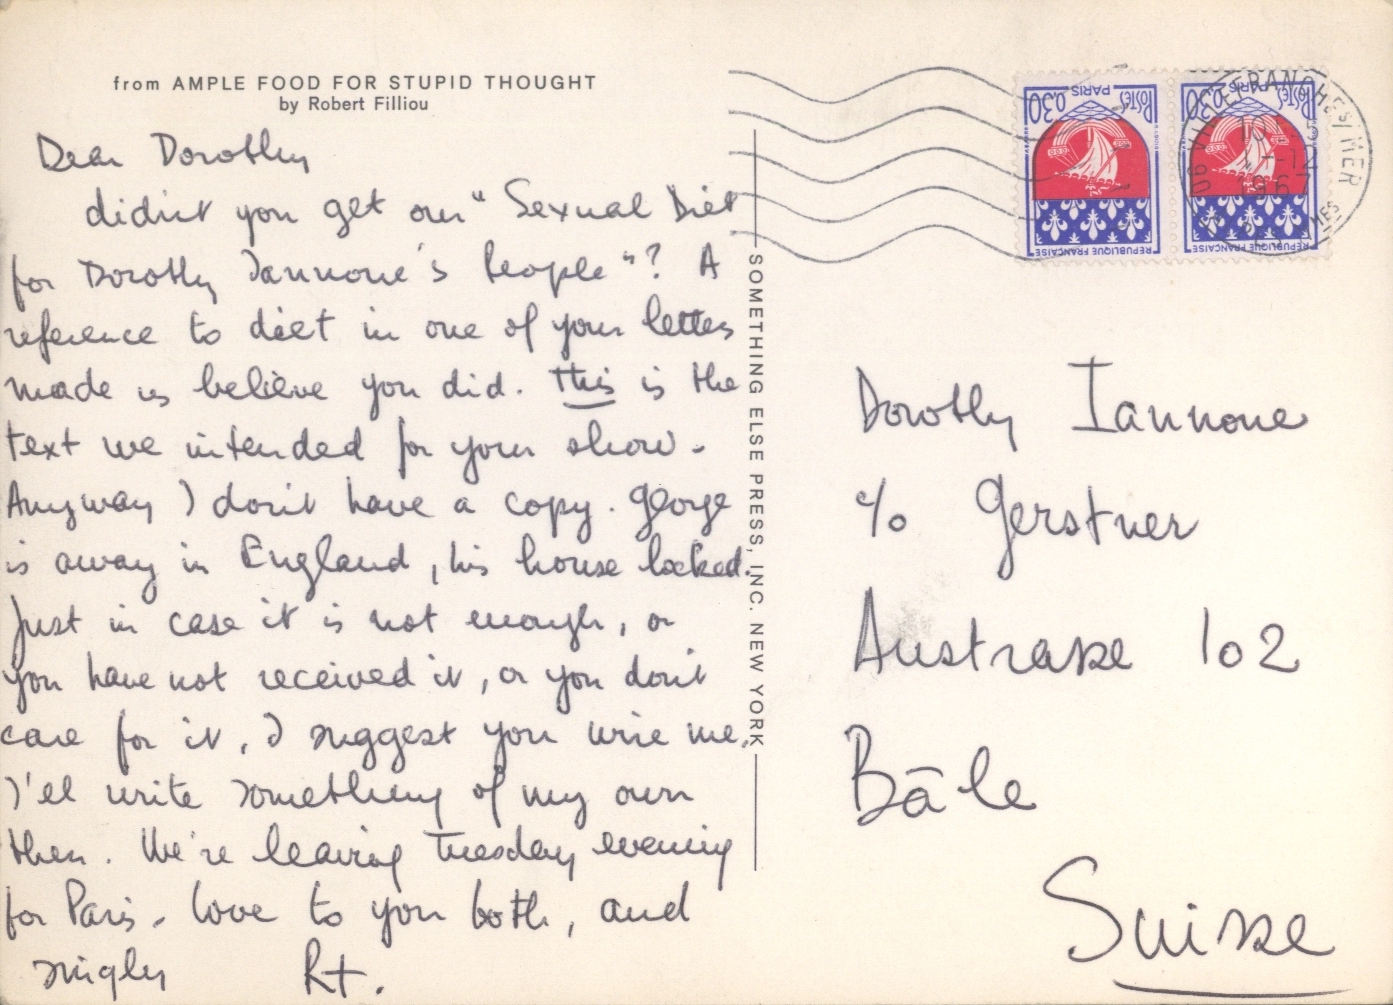 from AMPLE FOOD FOR STUPID THOUGHT
by Robert Filliou
Dear Dorothy
didn't you get our "Sexual Diet
for Dorothy Iannone's People"? A
reference to diet in one of your letters
made us believe you did. This is the
text we intended for your show.
Anyway I don't have a copy. George
is away in England, his house locked.
Just in case it is not enough, or
you have not received it, or you don't
care for it, I suggest you wire me,
I'll write something of my own
then. We're leaving Tuesday evening
for Paris. Love to you both, and
singly Rt.
SOMETHING ELSE PRESS, INC. NEW YORK
0,30 PARIS POSTES
REPUBLIQUE FRANÇAISE
0,30 PARIS POSTES
REPUBLIQUE FRANÇAISE
06 VILLEFRANCHE S/MER
1967
Dorothy Iannone
c/o Gerstner
Austrasse 102
Bâle
Suisse